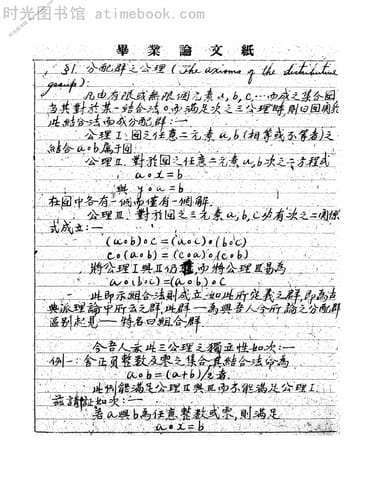 时光图书馆 atimebook.com
畢業論文紙
§1. 分配群之公理 (The axioms of the distributive
group):
凡由有限或無限個元素 a, b, c, … 而成之集合 圕
当其對於某一結合法 o 而滿足次之三公理時,則曰 圕 關於
此結合法而成分配群:—
公理 I. 圕之任意二元素 a, b (相等或不等者)之
結合 a o b 属于圕.
公理 II. 對於圕之任意二元素 a, b 次之二方程式
a o x = b
與 y o a = b
在圕中各有一個而僅有一個解.
公理 III. 對於圕之三元素 a, b, c 必有次之二関係
式成立:—
(a o b) o c = (a o c) o (b o c)
c o (a o b) = (c o a) o (c o b)
將公理 I 與 II 仍 而將公理 III 易為
a o (b o c) = (a o b) o c
此即示組合法則成立.如此所定義之群,即為古
典派理論中所云之群,此群—為與吾人今所論之分配群
區别起見—特名曰組合群
今吾人示此三公理之獨立性如次:—
例一: 令正負整數及零之集合其結合法 o 為
a o b = (a+b)/2 者.
此例能滿足公理 II 與 III 而不能滿足公理 I.
茲請証如次:—
若 a 與 b 為任意整數或零,則滿足
a o x = b